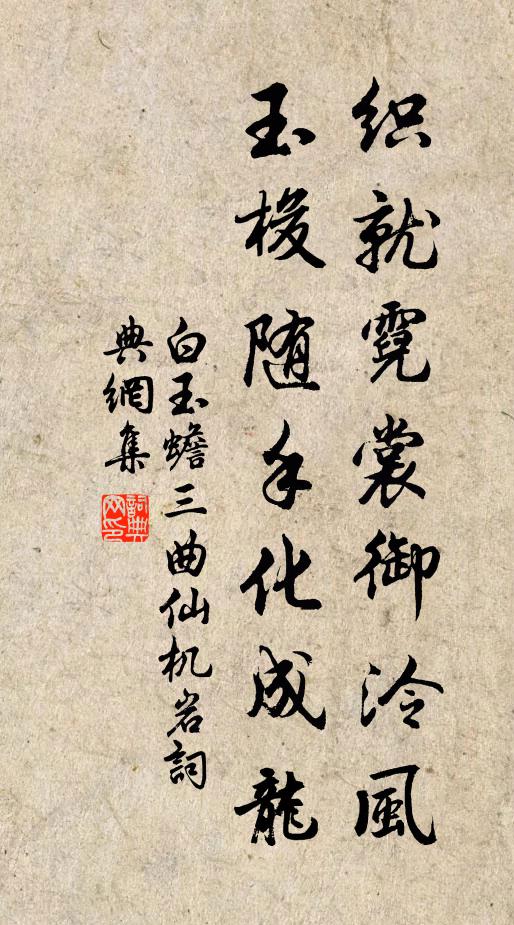 织就霓裳御泠风
玉梭随手化成龍
白玉蟾三曲仙机岩詞
典網集
詞典網印